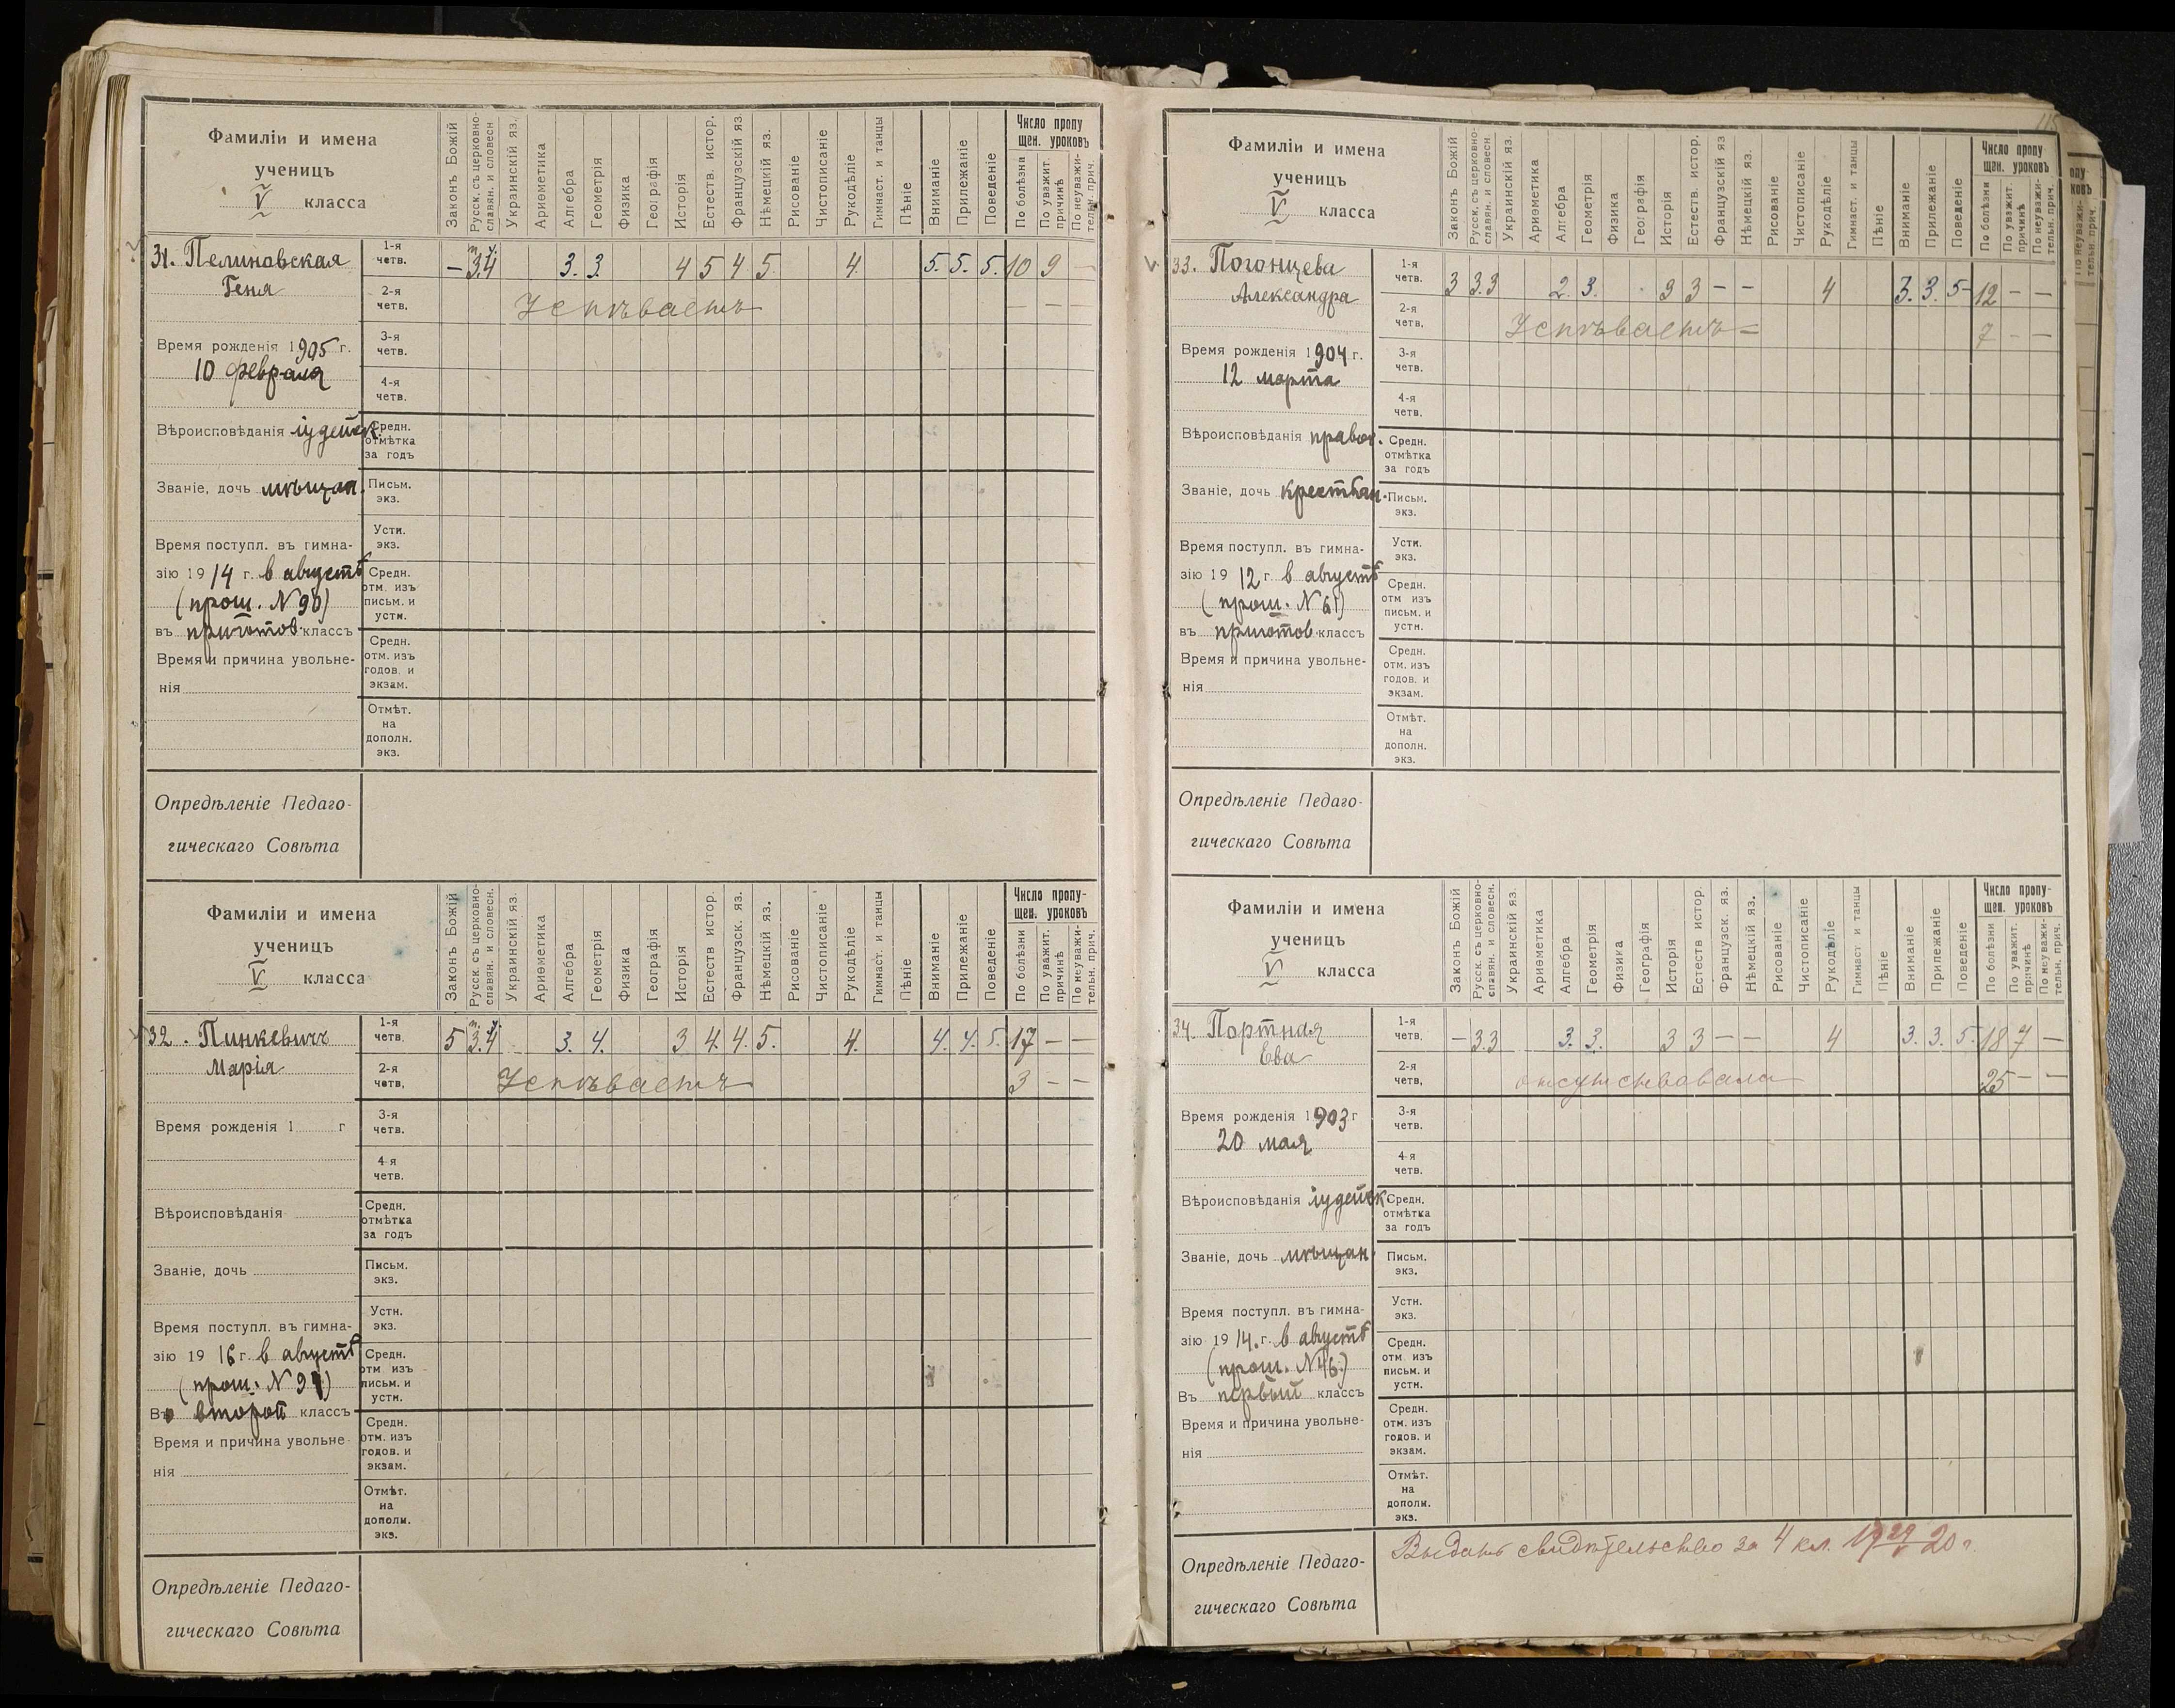 Фамиліи и имена
ученицъ
V класса
Законъ Божій
Русск. съ церковно-
славян. и словесн
Украинскій яз.
Ариѳметика
Алгебра
Геометрія
Физика
Географія
Исторія
Естеств. истор.
Французскій яз.
Нѣмецкій яз.
Рисованіе
Чистописаніе
Рукодѣліе
Гимнаст. и танцы
Пѣніе
Вниманіе
Прилежаніе
Поведеніе
Число пропу
щен. уроковъ
По болѣзни
По уважит.
причинѣ
По неуважи-
тельн. прич.
31. Пелиновская
Геня
1-я
четв.
– 3.4 3. 3. 4 5 4 5 4. 5. 5. 5. 10 9 –
2-я
четв.
Успѣваетъ – – –
Время рожденія 1905 г.
10 февраля
3-я
четв.
4-я
четв.
Вѣроисповѣданія іудейск.
Средн.
отмѣтка
за годъ
Званіе, дочь мѣщан.
Письм.
экз.
Время поступл. въ гимна-
зію 1914 г. в августѣ
(прош. N 90)
въ приготов. классъ
Устн.
экз.
Средн.
отм. изъ
письм. и
устн.
Время и причина увольне-
нія
Средн.
отм. изъ
годов. и
экзам.
Отмѣт.
на
дополн.
экз.
Опредѣленіе Педаго-
гическаго Совѣта
Фамиліи и имена
ученицъ
V класса
Законъ Божій
Русск. съ церковно-
славян. и словесн.
Украинскій яз.
Ариѳметика
Алгебра
Геометрія
Физика
Географія
Исторія
Естеств истор.
Французск. яз.
Нѣмецкій яз.
Рисованіе
Чистописаніе
Рукодѣліе
Гимнаст. и танцы
Пѣніе
Вниманіе
Прилежаніе
Поведеніе
Число пропу-
щен. уроковъ
По болѣзни
По уважит.
причинѣ
По неуважи-
тельн. прич.
32. Пинкевичъ
Марія
1-я
четв.
5 3.4 3. 4. 3 4. 4. 5. 4. 4. 4. 5. 17 – –
2-я
четв,
Успѣваетъ 3 – –
Время рожденія 1 г
3-я
четв.
4-я
четв.
Вѣроисповѣданія
Средн.
отмѣтка
за годъ
Званіе, дочь
Письм.
экз.
Время поступл. въ гимна-
зію 1916 г. в августѣ
(прош. N 91)
Въ второй классъ
Устн.
экз.
Средн.
отм изъ
письм. и
устн.
Время и причина увольне-
нія
Средн.
отм. изъ
годов. и
экзам.
Отмѣт.
на
дополн.
экз.
Опредѣленіе Педаго-
гическаго Совѣта
Фамиліи и имена
ученицъ
V класса
Законъ Божій
Русск. съ церковно-
славян. и словесн
Украинскій яз.
Ариѳметика
Алгебра
Геометрія
Физика
Географія
Исторія
Естеств. истор.
Французскій яз
Нѣмецкій яз.
Рисованіе
Чистописаніе
Рукодѣліе
Гимнаст. и танцы
Пѣніе
Вниманіе
Прилежаніе
Поведеніе
Число пропу
щен. уроковъ
По болѣзни
По уважит.
причинѣ
По неуважи-
тельн. прич.
33. Погонцева
Александра
1-я
четв.
3 3.3 2. 3. 3 3 – – 4 3. 3. 5– 12 – –
2-я
четв.
Успѣваетъ 7 – –
Время рожденія 1904 г.
12 марта
3-я
четв.
4-я
четв.
Вѣроисповѣданія правос.
Средн.
отмѣтка
за годъ
Званіе, дочь крестьян.
Письм.
экз.
Время поступл. въ гимна-
зію 1912 г. в августѣ
(прош. N 61)
въ приготов. классъ
Устн.
экз.
Средн.
отм изъ
письм. и
устн.
Время и причина увольне-
нія
Средн.
отм. изъ
годов. и
экзам.
Отмѣт.
на
дополн.
экз.
Опредѣленіе Педаго-
гическаго Совѣта
Фамиліи и имена
ученицъ
V класса
Законъ Божій
Русск. съ церковно-
славян. и словесн.
Украинскій яз.
Ариѳметика
Алгебра
Геометрія
Физика
Географія
Исторія
Естеств истор.
Французск. яз.
Нѣмецкій яз.
Рисованіе
Чистописаніе
Рукодѣліе
Гимнаст и танцы
Пѣніе
Вниманіе
Прилежаніе
Поведеніе
Число пропу-
щен. уроковъ
По болѣзни
По уважит.
причинѣ
По неуважи-
тельн. прич.
34. Портная
Ева
1-я
четв.
– 3.3 3. 3. 3 3 – – 4 3. 3. 5. 18 7 –
2-я
четв,
отсутствовала 25 – –
Время рожденія 1903 г
20 мая
3-я
четв.
4-я
четв.
Вѣроисповѣданія іудейск
Средн.
отмѣтка
за годъ
Званіе, дочь мѣщан.
Письм.
экз.
Время поступл. въ гимна-
зію 1914. г. в августѣ
(прош. N 46.)
Въ первый классъ
Устн.
экз.
Средн.
отм. изъ
письм. и
устн.
Время и причина увольне-
нія
Средн.
отм. изъ
годов. и
экзам.
Отмѣт.
на
дополн.
экз.
Опредѣленіе Педаго-
гическаго Совѣта
Выдано свидѣтельство за 4 кл. 19 29/V 20 г.